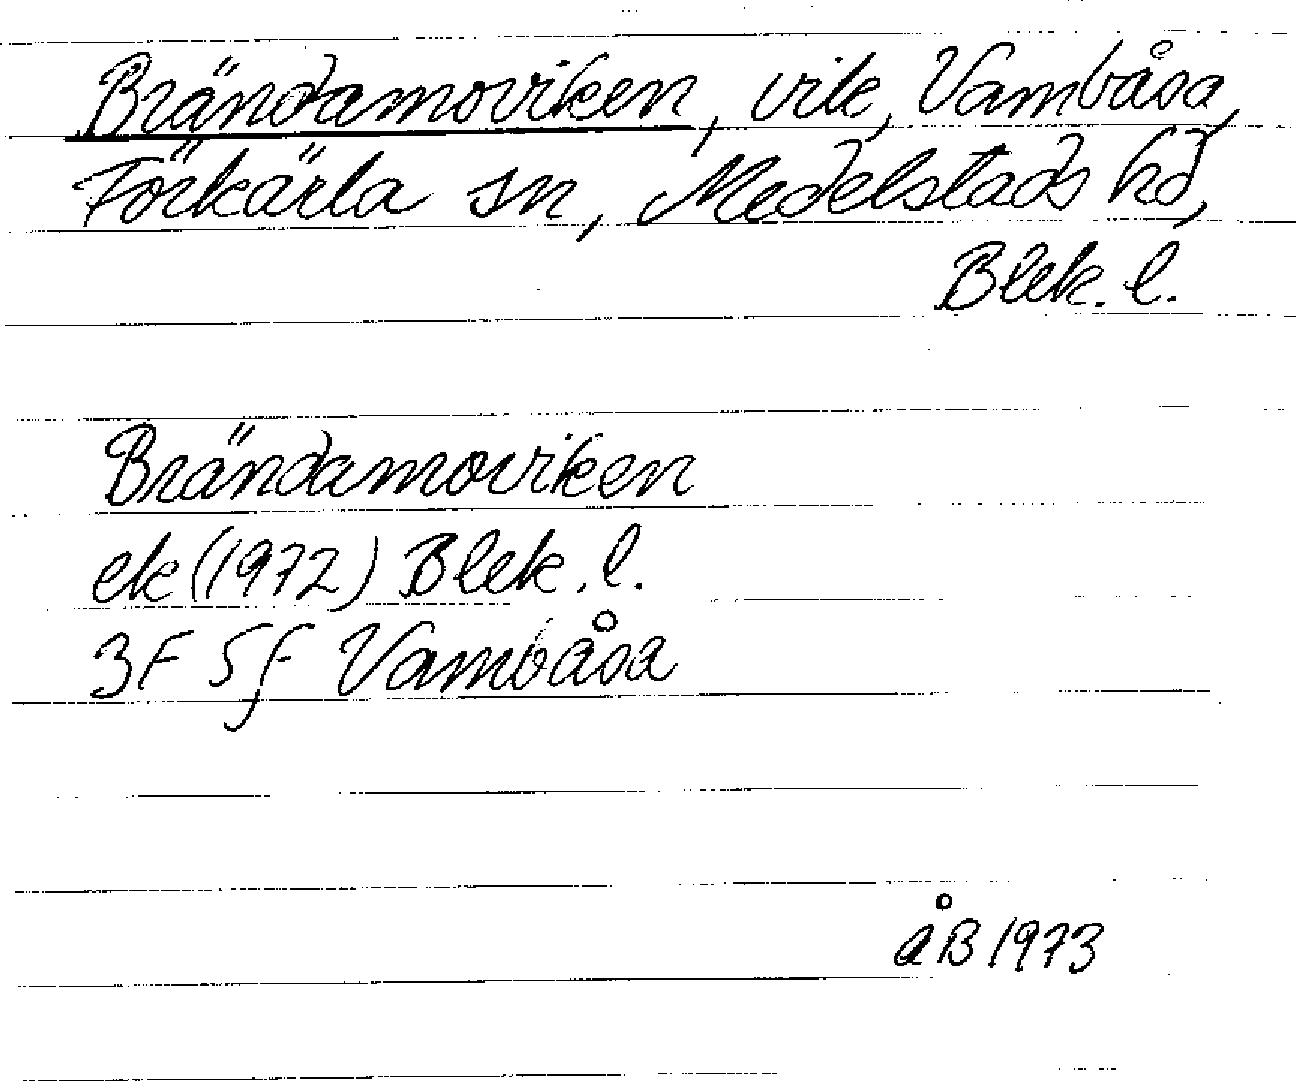 Brändamoviken, vik, Vambåsa,
Förkärla sn, Medelstads hd,
Blek. l.
Brändamoviken
ek (1972) Blek. l.
3F 5f Vambåsa
åB 1973